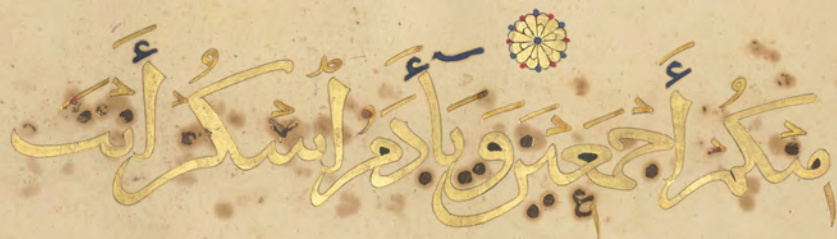 مِنكُمُۥٓ أَجۡمَعِينَ وَيَٰٓـَٔادَمُ ٱسۡكُنۡ أَنتَ